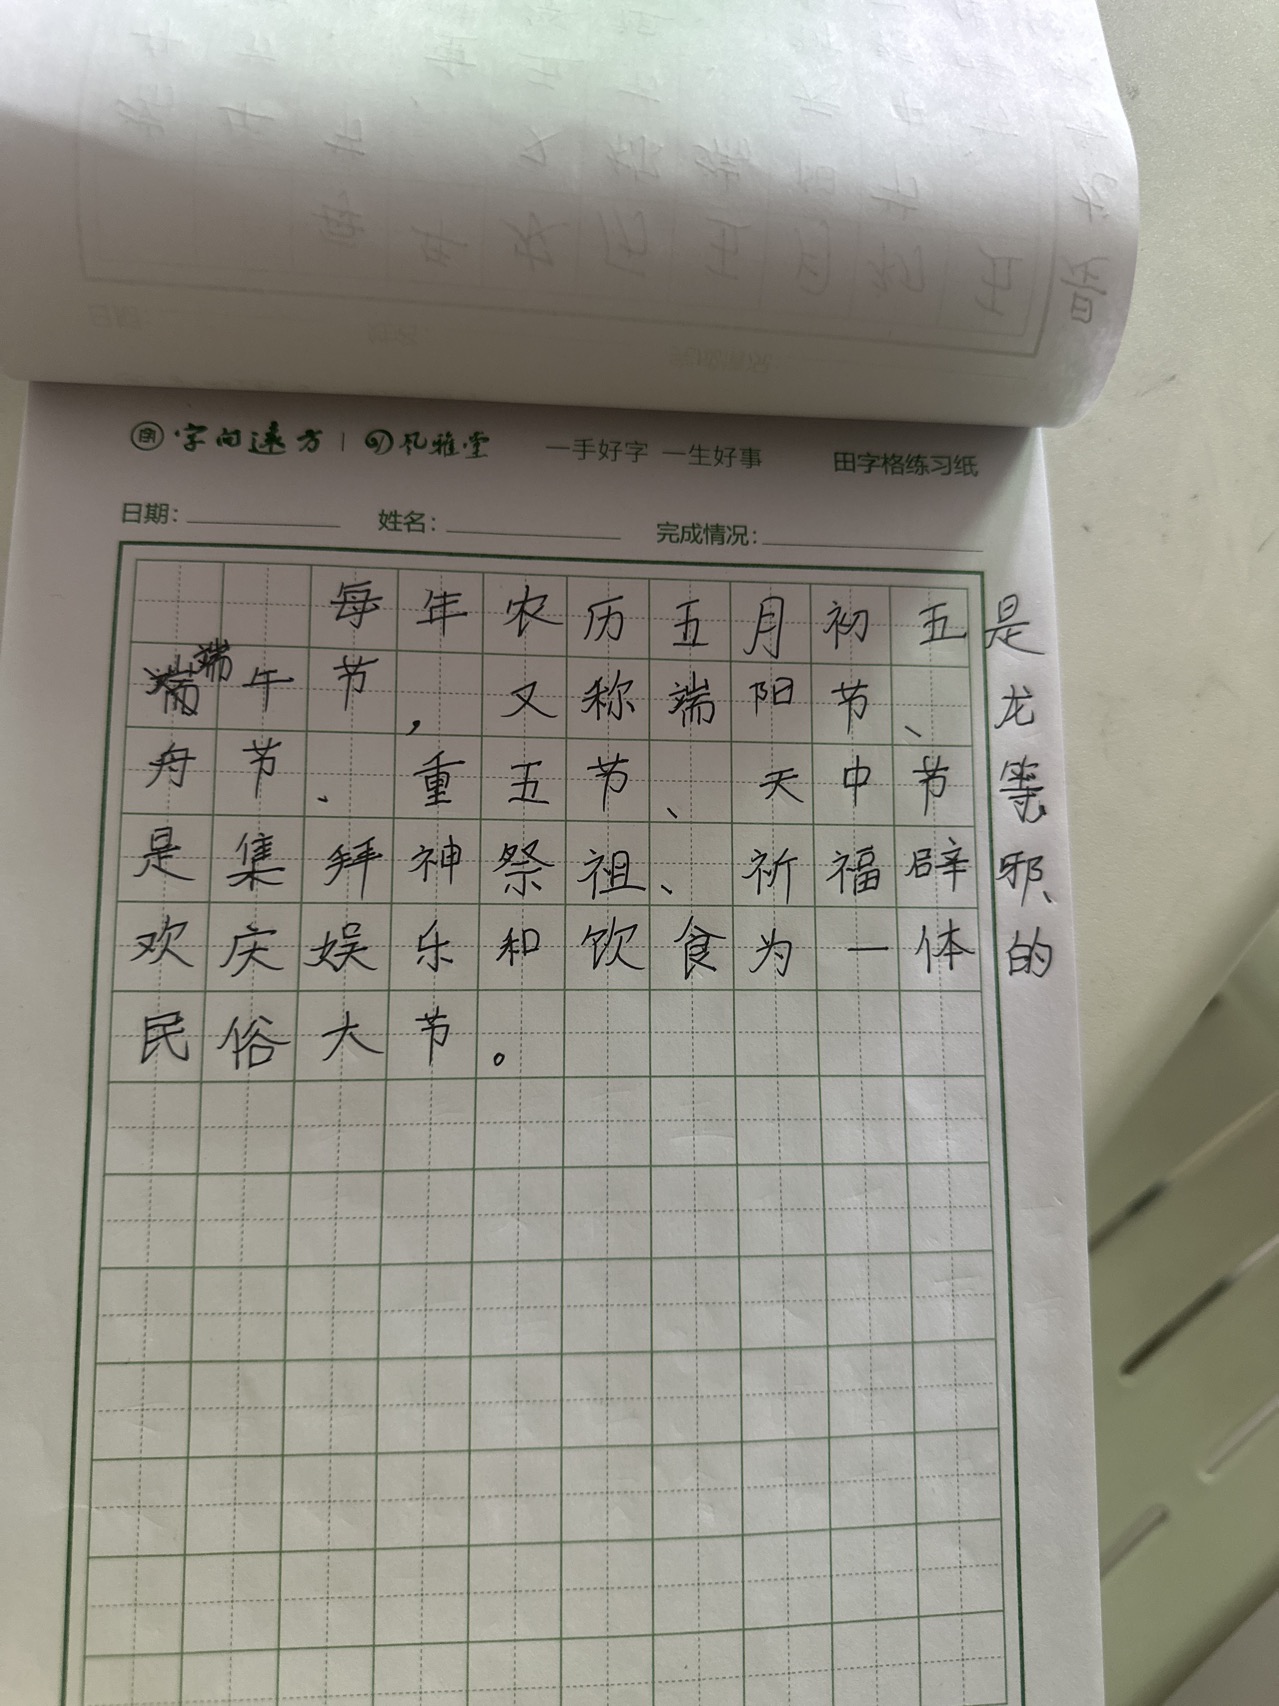 字向远方 | 风雅堂 一手好字 一生好事 田字格练习纸
日期: 姓名: 完成情况:
每年农历五月初五是
端午节，又称端阳节、龙
舟节、重五节、天中节等,
是集拜神祭祖、祈福辟邪、
欢庆娱乐和饮食为一体的
民俗大节。